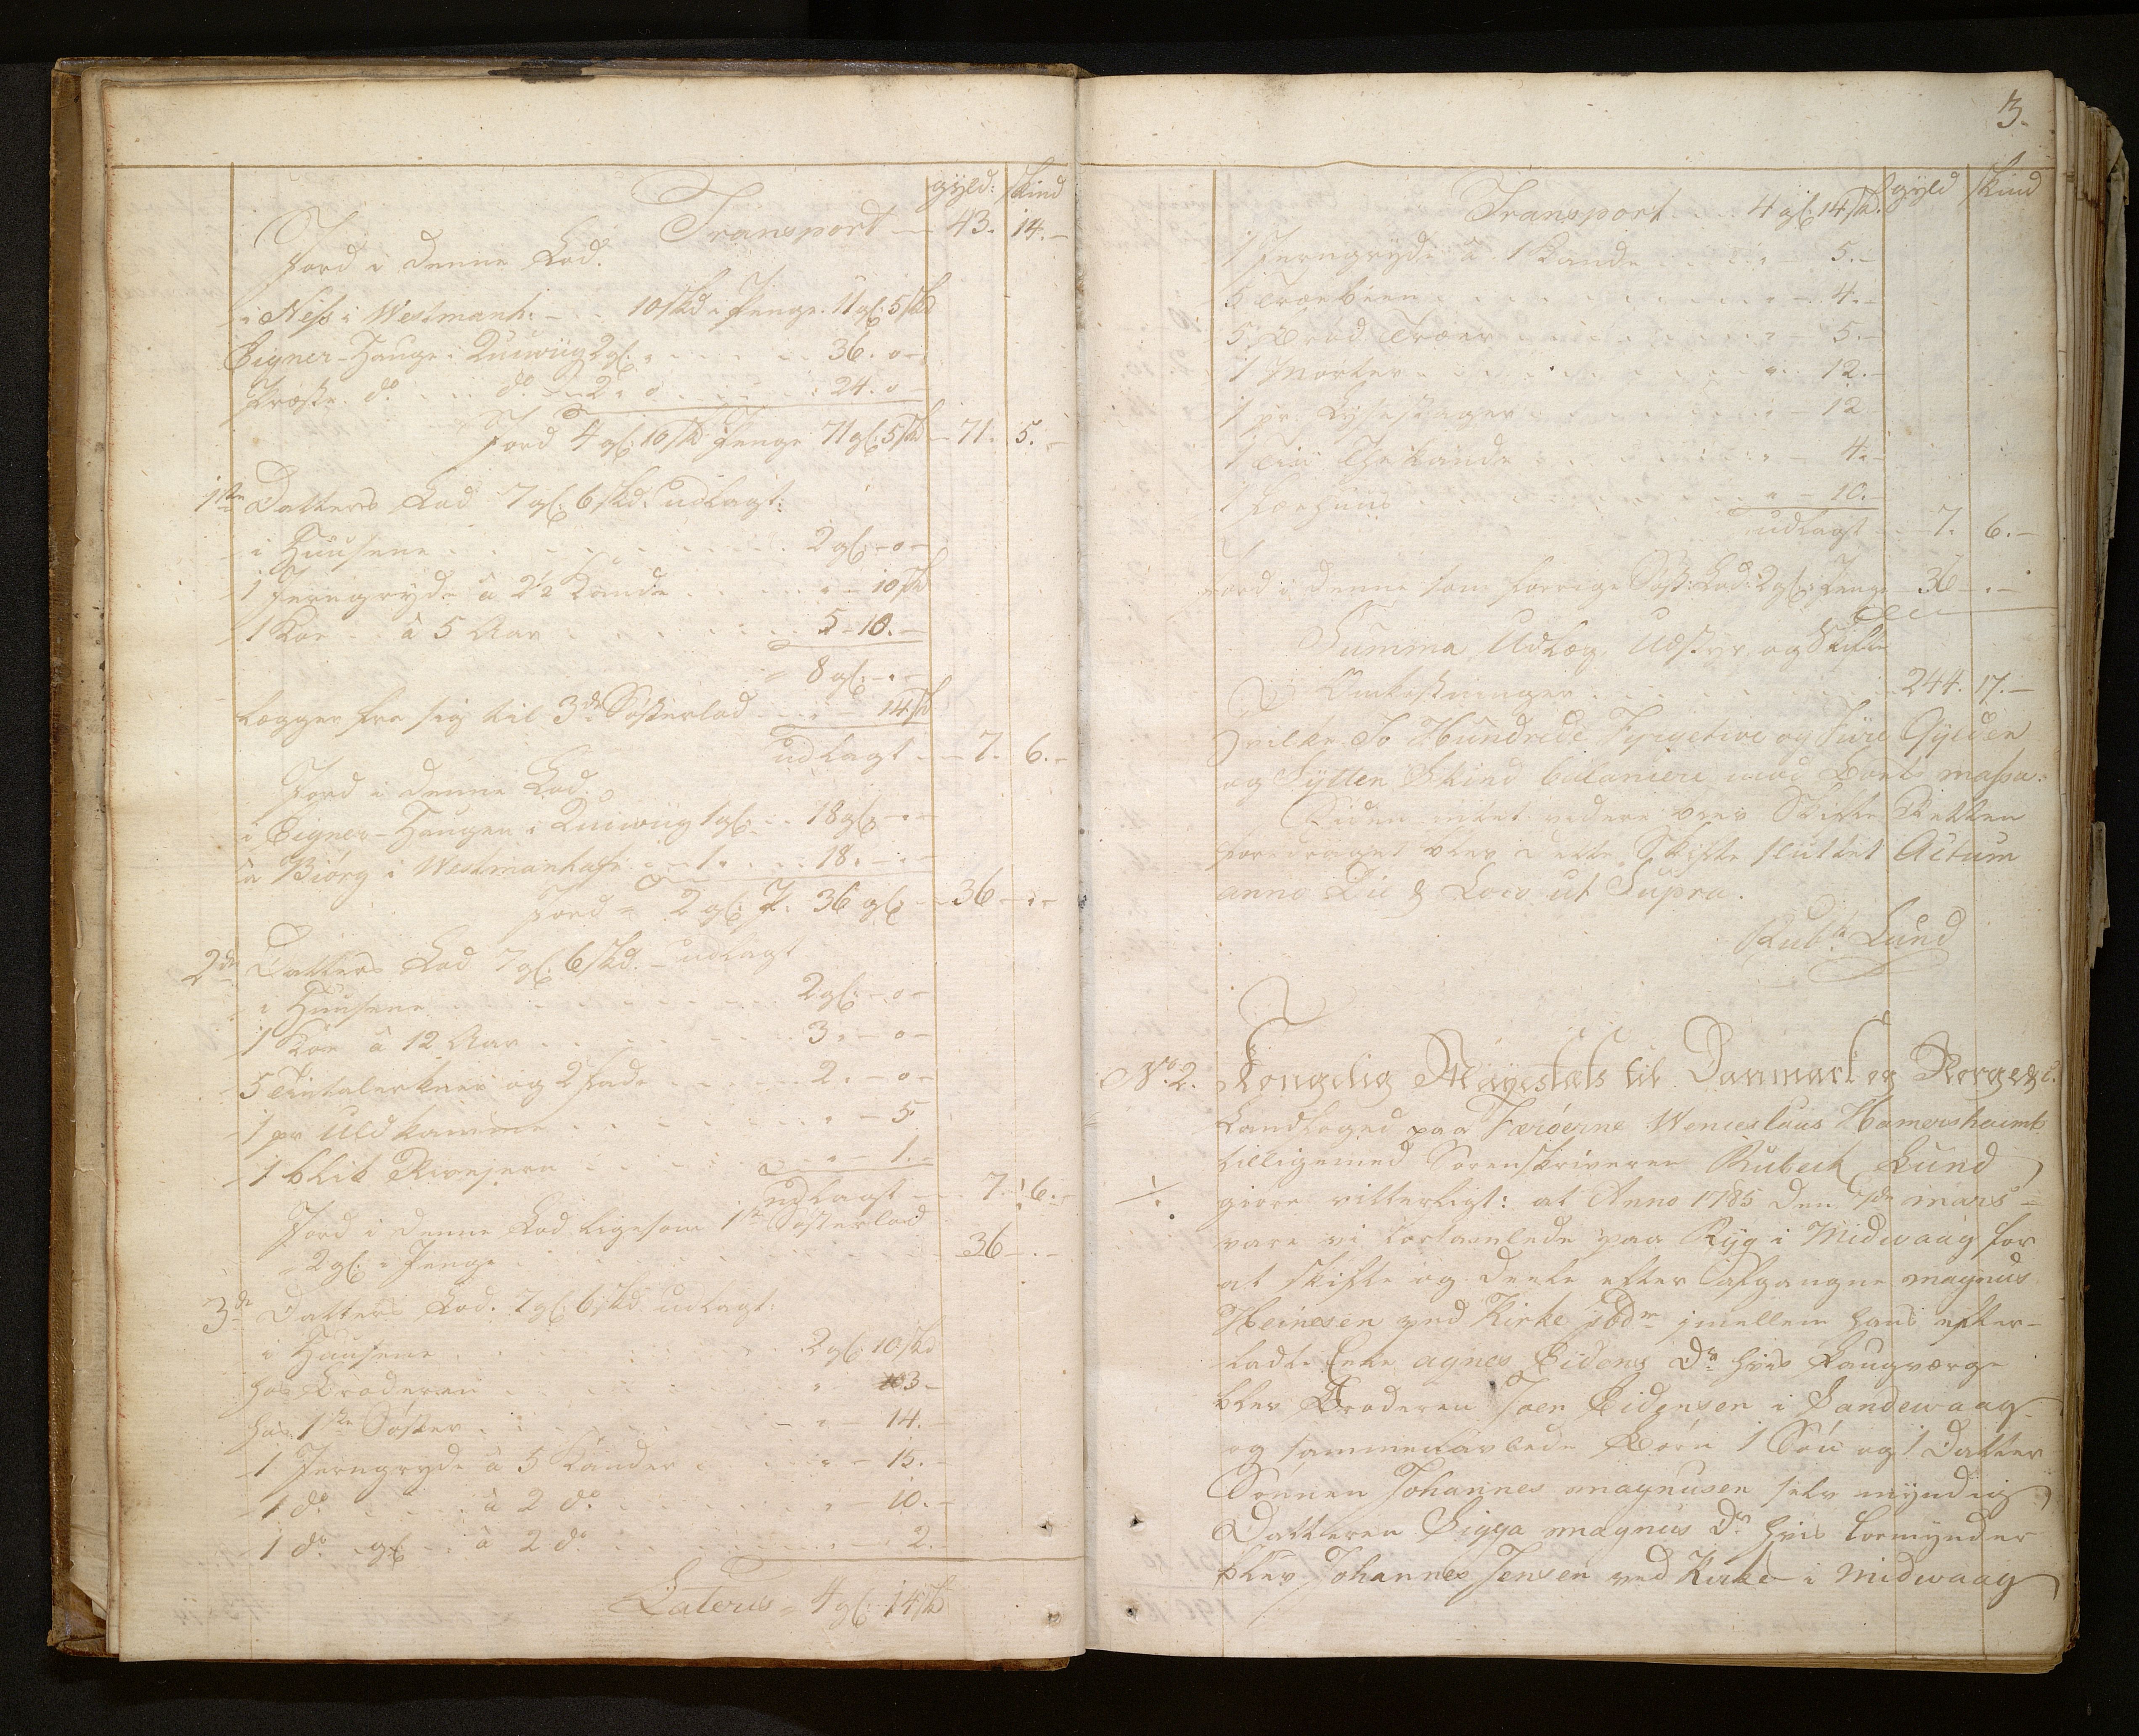 gyld: skind
Transport — 43. 14.–
Jord i denne Lod.
i Neß i Westmanh: – .. 10 skd i Penge. 11 gl: 5 skd
Eigner-Hauge i Quiwiig 2 gl: . . . . 36. o –
Præste do. . . . do. – 2 " o . . . . 24. o –
Jord 4 gl: 10 skd Penge 71 gl: 5 skd – 71. 5.–
1ste Datters Lod 7 gl: 6 skd. udlagt:
i Huusene . . . . . . 2 gl: – o –
1 Jerngryde â 2½ Kande . . . . " – 10 skd
1 Koe â 5 Aar . . . . . 5 – 10.–
8 gl: – " –
lægger fra sig til 3die Søsterlod . . " – 14 skd
udlagt – 7. 6.–
Jord i denne Lod.
i Eigner-Haugen i Quiwiig 1 gl: . . 18 gl: – " –
â Biörg i Westmanhafn . . 1 " . . . 18. – " –
Jord = 2 gl: P: 36 gl: – 36 – " –
2den Datters Lod 7 gl: 6 skd. – udlagt
i Huusene . . . . . . 2 gl: – o –
1 Koe â 12 Aar . . . . . 3. – o –
5 Tintalerkner og 2 Fade . . . 2. – o –
1 pr Uldkamme . . . . . " – 5
1 blik Rivejern . . . . " – 1.–
udlagt – 7. 6.–
Jord i denne Lod ligesom 1ste Søsterlod
2 gl: i Penge . . . . . . 36 – " –
3die Datters Lod. 7 gl: 6 skd udlagt:
i Huusene . . . . . . 2 gl: 10 skd
hos Broderen . . . . . " 3 –
hos 1ste Søster . . . . . – " – 14.–
1 Jerngryde â 3 Kander . . . " – 15.–
1 do. . . . â 2 do. . . . . " – 10.–
1 do. gl: . . â 2 do. . . . . – 2.
Laterus = 4 gl: 14 skd
3.
gyld skind
Transport . . . 4 gl: 14 skd.
1 Jerngryde â 1 Kande . . . . " – 5.–
. . . . . . . . " – 4.–
5 Træer . . . . . " – 5.–
1 Morter . . . . . . . " . 12.–
1 pr Lysestager . . . . . . " – 12
1 Tin Thekande . . . . . " – 4.–
1 . . . . . . . . " – 10.–
udlagt – 7. 6.–
Jord i denne som forrige Søst: Lod: 2 gl: i Penge 36 – " –
Summa Udlæg, Udstyr og Skifte
Omkostninger . . . . . . 244. 17.–
Hvilke To Hundrede Fyrgetive og Fire Gylden
og Sytten Skind balancere mod Boets maßa:
Siden intet videre blev Skifte Retten
foredraget blev dette Skifte sluttet Actum
anno Die & Loco ut Supra.
Rubk Lund
No. 2. Kongelig Mayestæts til Danmark og Norge &c.
Landfoged paa Færöerne Wenceslaus Hamershaimb
tilligemed Sorenskriveren Rubech Lund
giøre vitterligt: at Anno 1785 den 7de mars
vare vi forsamlede paa Ryg i Midwaag for
at skifte og deele efter Afgangne magnus
Heinesen ved Kirke jbdm jmellem hans efter-
ladte Enke agnes Eidens Dr hvis Laugværge
blev Broderen Joen Eidensen i Sandewaag
og sammenavlede Børn 1 Søn og 1 Datter
Sønnen Johannes magnusen selv myndig
Datteren Sigga magnus Dr hvis Formynder
blev Johannes Jensen ved Kirke i Midwaag